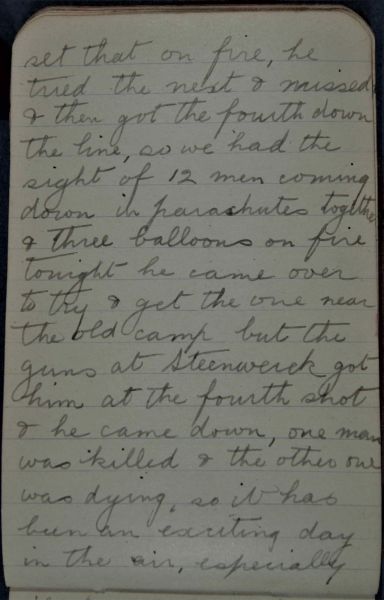 set that on fire, he
tried the next & missed
& then got the fourth down
the line, so we had the
sight of 12 men coming
down in parachutes together
& three balloons on fire
tonight he came over
to try & get the one near
the old camp but the
guns at Steenwerck got
him at the fourth shot
& he came down, one man
was killed & the other one
was dying, so it has
been an exciting day
in the air, especially